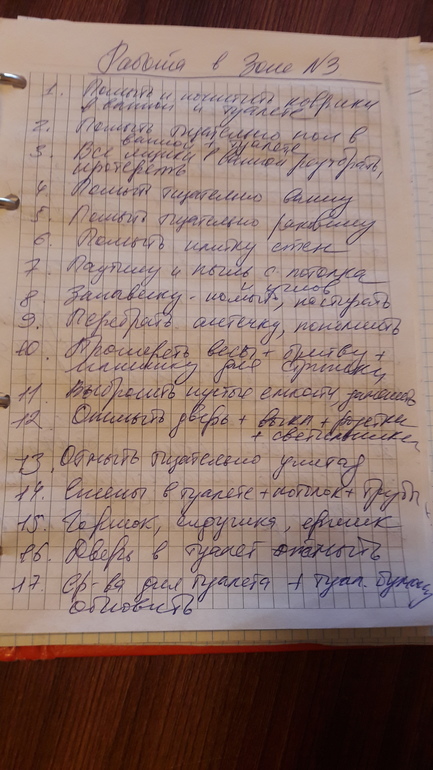 Работа в Зоне N3
1. Помыть и почистить коврики
в ванной и туалете
2. Помыть тщательно пол в
ванной + туалете
3. Все ящики в ванной разобрать,
протереть
4. Помыть тщательно ванну
5. Помыть тщательно раковину
6. Помыть плитку стен
7. Паутину и пыль с потолка
и углов
8. Занавеску - помыть, постирать
9. Перебрать аптечку, пополнить
10. Протереть весы + бритву +
машинку для стрижки
11. Выбросить пустые емкости,
12. Отмыть дверь + выкл + розетки
+ светильники
13. Отмыть тщательно унитаз
14. Стены в туалете + потолок + трубы
15. Горшок, сидушка, ершик
16. Дверь в туалет отмыть
17. Ср-ва для туалета + туал. бумагу
обновить